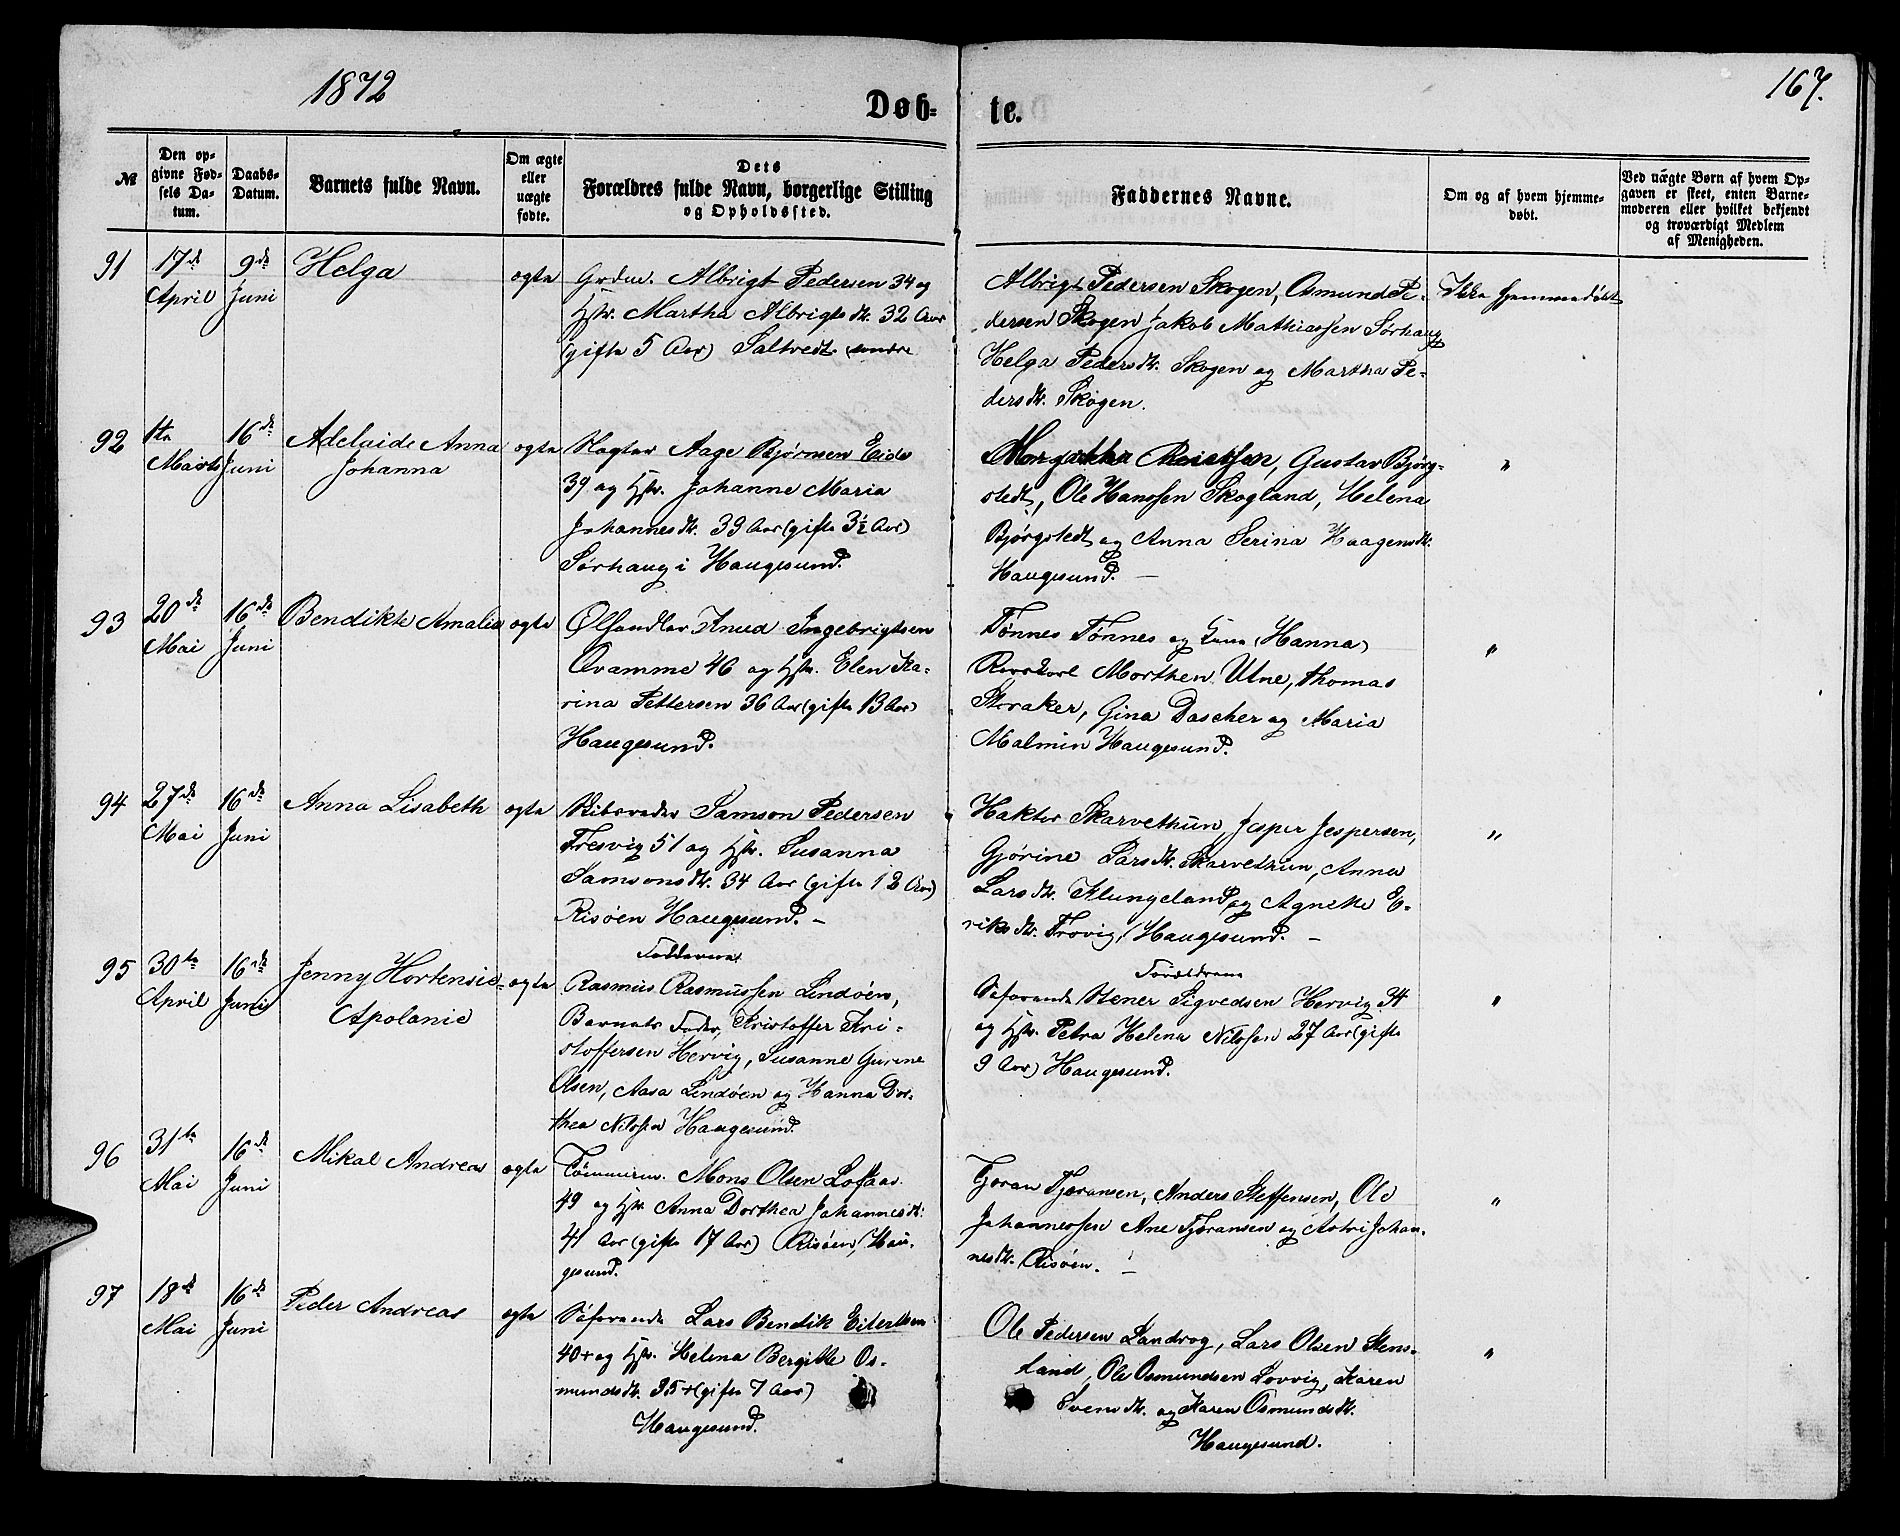 1872
167.
Døb-
te.
№
Den op-
givne Fød-
sels Da-
tum.
Daabs-
Datum.
Barnets fulde Navn.
Om ægte
eller
uægte
fødte.
Dets
Forældres fulde Navn, borgerlige Stilling
og Opholdssted.
Faddernes Navne.
Om og af hvem hjemme-
døbt.
Ved uægte Børn af hvem Op-
gaven er skeet, enten Barne-
moderen eller hvilket bekjendt
og troværdigt Medlem
af Menigheden.
91
17de
April
9de
Juni
Helga
ægte
Grdm. Albrigt Pedersen 34 og
Hstr. Martha Albrigtsdtr. 32 Aar
(gifte 5 Aar) Saltvedt
Albrigt Pedersen Skogen, Osmund Pe-
dersen Skogen Jakob Mathiassen Sørhaug
Helga Pedersdtr. Skogen og Martha Pe-
dersdtr. Skogen.
Ikke hjemmedøbt
92
1te
Marts
16de
Juni
Adelaide Anna
Johanna
ægte
Slagter Aage Bjørnsen Eide
39 og Hstr. Johanne Maria
Johannesdtr. 39 Aar (gifte 3½ Aar)
Sørhaug i Haugesund.
Gustav Bjørg-
stedt, Ole Hanssen Skogland, Helena
Bjørgstedt og Anna Serina Haagensdtr.
Haugesund. —
"
93
20de
Mai
16de
Juni
Bendikte Amalia
ægte
Ølhandler Knud Ingebrigtsen
Qvamme 46 og Hstr. Elen Ka-
rina Pettersen 36 Aar (gifte 13 Aar)
Haugesund.
Tønnes Tønnes og Kone (Hanna)
Morthen Utne, Thomas
Storaker, Gina Dascher og Maria
Malmin Haugesund.
"
94
27de
Mai
16de
Juni
Anna Lisabeth
ægte
Skibsreder Samson Pedersen
Tresvig 51 og Hstr. Susanna
Samsonsdtr. 34 Aar (gifte 12 Aar)
Risøen Haugesund. —
Haktor Skarvethun, Jesper Jespersen,
Gjørine Larsdtr. Skarvethun, Anna
Larsdtr. Klungeland og Agnethe E-
riksdtr. Trovig, Haugesund. —
"
95
30te
April
16de
Juni
Jenny Hortensie
Apolonie
ægte
Fadderne
Rasmus Rasmussen Lindøen,
Barnets Fader, Kristoffer Kri-
stoffersen Hervig, Susanne Gurine
Olsen, Aasa Lindøen og Hanna Dor-
thea Nilssen Haugesund.
Forældrene
Søfarende Stener Sigvedsen Hervig 34
og Hstr. Petra Helena Nilssen 27 Aar (gifte
9 Aar) Haugesund.
"
96
31te
Mai
16de
Juni
Mikal Andreas
ægte
Tømmerm. Mons Olsen Lofaas
49 og Hstr. Anna Dorthea Johannesdtr.
41 Aar (gifte 17 Aar) Risøen, Hau-
gesund.
Tjøran Tjøransen, Anders Steffensen, Ole
Johannessen Ane Tjøransen og Astri Johan-
nesdtr. Risøen. —
"
97
18de
Mai
16de
Juni
Peder Andreas
ægte
Søfarende Lars Bendik Eilertsen
40 og Hstr. Helena Bergitte Os-
mundsdtr. 35 (gifte 7 Aar)
Haugesund.
Ole Pedersen Sandvog, Lars Olsen Stens-
land, Ole Osmundsen Lovvig, Karen
Svensdtr. og Karen Osmundsdtr.
Haugesund.
"